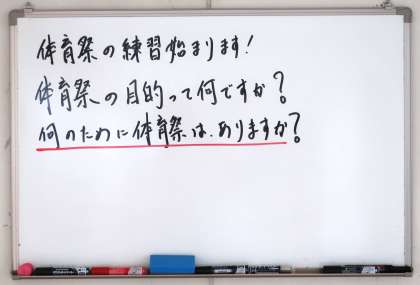 体育祭の練習始まります!
体育祭の目的って何ですか?
何のために体育祭は、ありますか?